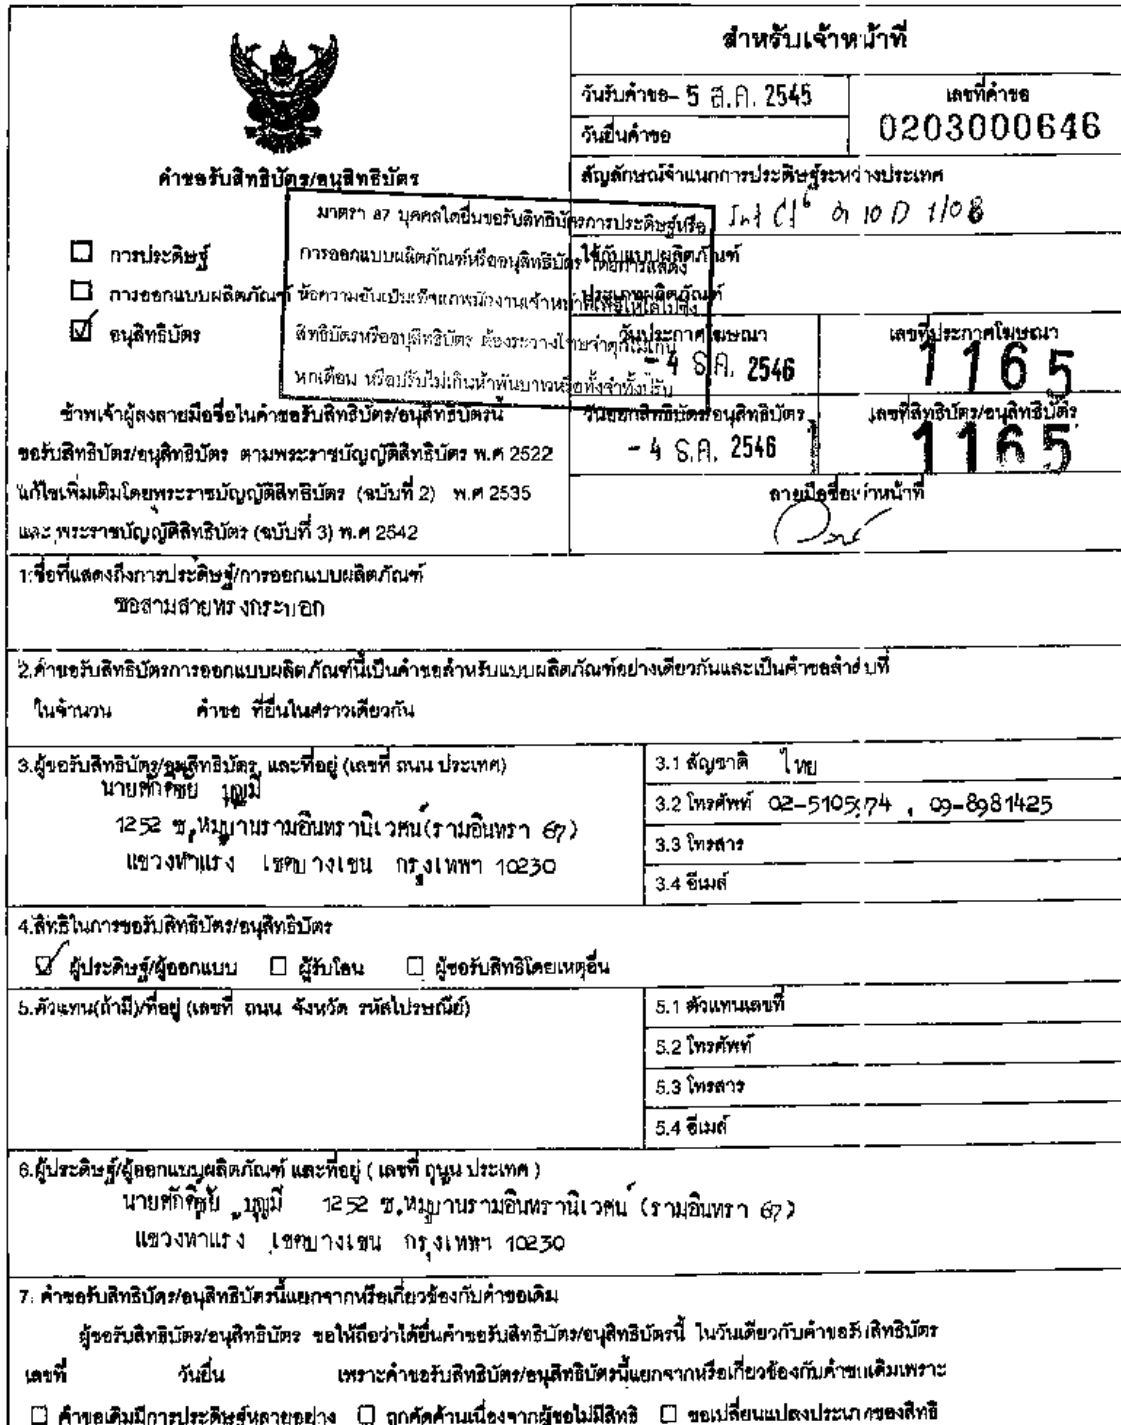 สำหรับเจ้าหน้าที่
วันรับคำขอ - 5 ส.ค. 2545
เลขที่คำขอ
0203000646
วันยื่นคำขอ
สัญลักษณ์จำแนกการประดิษฐ์ระหว่างประเทศ
Int Cl6 10 D 1/08
คำขอรับสิทธิบัตร/อนุสิทธิบัตร
☐ การประดิษฐ์
☐ การออกแบบผลิตภัณฑ์
☑ อนุสิทธิบัตร
มาตรา 87 บุคคลใดยื่นขอรับสิทธิบัตรการประดิษฐ์หรือ
การออกแบบผลิตภัณฑ์หรืออนุสิทธิบัตร โดยการแสดง
ข้อความอันเป็นเท็จแก่พนักงานเจ้าหน้าที่เพื่อให้ได้ไปซึ่ง
สิทธิบัตรหรืออนุสิทธิบัตร ต้องระวางโทษจำคุกไม่เกิน
หกเดือน หรือปรับไม่เกินห้าพันบาทหรือทั้งจำทั้งปรับ
ใช้กับแบบผลิตภัณฑ์
ประเภทผลิตภัณฑ์
วันประกาศโฆษณา
- 4 ธ.ค. 2546
เลขที่ประกาศโฆษณา
1165
วันออกสิทธิบัตร/อนุสิทธิบัตร
- 4 ธ.ค. 2546
เลขที่สิทธิบัตร/อนุสิทธิบัตร
1165
ลายมือชื่อเจ้าหน้าที่
ข้าพเจ้าผู้ลงลายมือชื่อในคำขอรับสิทธิบัตร/อนุสิทธิบัตรนี้
ขอรับสิทธิบัตร/อนุสิทธิบัตร ตามพระราชบัญญัติสิทธิบัตร พ.ศ 2522
แก้ไขเพิ่มเติมโดยพระราชบัญญัติสิทธิบัตร (ฉบับที่ 2) พ.ศ 2535
และ พระราชบัญญัติสิทธิบัตร (ฉบับที่ 3) พ.ศ 2542
1.ชื่อที่แสดงถึงการประดิษฐ์/การออกแบบผลิตภัณฑ์
ซอสามสายทรงกระบอก
2.คำขอรับสิทธิบัตรการออกแบบผลิตภัณฑ์นี้เป็นคำขอสำหรับแบบผลิตภัณฑ์อย่างเดียวกันและเป็นคำขอลำดับที่
ในจำนวน คำขอ ที่ยื่นในคราวเดียวกัน
3.ผู้ขอรับสิทธิบัตร/อนุสิทธิบัตร และที่อยู่ (เลขที่ ถนน ประเทศ)
นายศักดิ์ชัย บุญมี
1252 ซ.หมู่บานรามอินทรานิเวศน์(รามอินทรา 67)
แขวงท่าแร้ง เขตบางเขน กรุงเทพฯ 10230
3.1 สัญชาติ ไทย
3.2 โทรศัพท์ 02-5105 74 , 09-8981425
3.3 โทรสาร
3.4 อีเมล์
4.สิทธิในการขอรับสิทธิบัตร/อนุสิทธิบัตร
☑ ผู้ประดิษฐ์/ผู้ออกแบบ ☐ ผู้รับโอน ☐ ผู้ขอรับสิทธิโดยเหตุอื่น
5.ตัวแทน(ถ้ามี)/ที่อยู่ (เลขที่ ถนน จังหวัด รหัสไปรษณีย์)
5.1 ตัวแทนเลขที่
5.2 โทรศัพท์
5.3 โทรสาร
5.4 อีเมล์
6.ผู้ประดิษฐ์/ผู้ออกแบบผลิตภัณฑ์ และที่อยู่ ( เลขที่ ถนน ประเทศ )
นายศักดิ์ชัย บุญมี 1252 ซ.หมู่บานรามอินทรานิเวศน์ (รามอินทรา 67)
แขวงท่าแร้ง เขตบางเขน กรุงเทพฯ 10230
7. คำขอรับสิทธิบัตร/อนุสิทธิบัตรนี้แยกจากหรือเกี่ยวข้องกับคำขอเดิม
ผู้ขอรับสิทธิบัตร/อนุสิทธิบัตร ขอให้ถือว่าได้ยื่นคำขอรับสิทธิบัตร/อนุสิทธิบัตรนี้ ในวันเดียวกับคำขอรับสิทธิบัตร
เลขที่ วันยื่น เพราะคำขอรับสิทธิบัตร/อนุสิทธิบัตรนี้แยกจากหรือเกี่ยวข้องกับคำขอเดิมเพราะ
☐ คำขอเดิมมีการประดิษฐ์หลายอย่าง ☐ ถูกคัดค้านเนื่องจากผู้ขอไม่มีสิทธิ ☐ ขอเปลี่ยนแปลงประเภทของสิทธิ